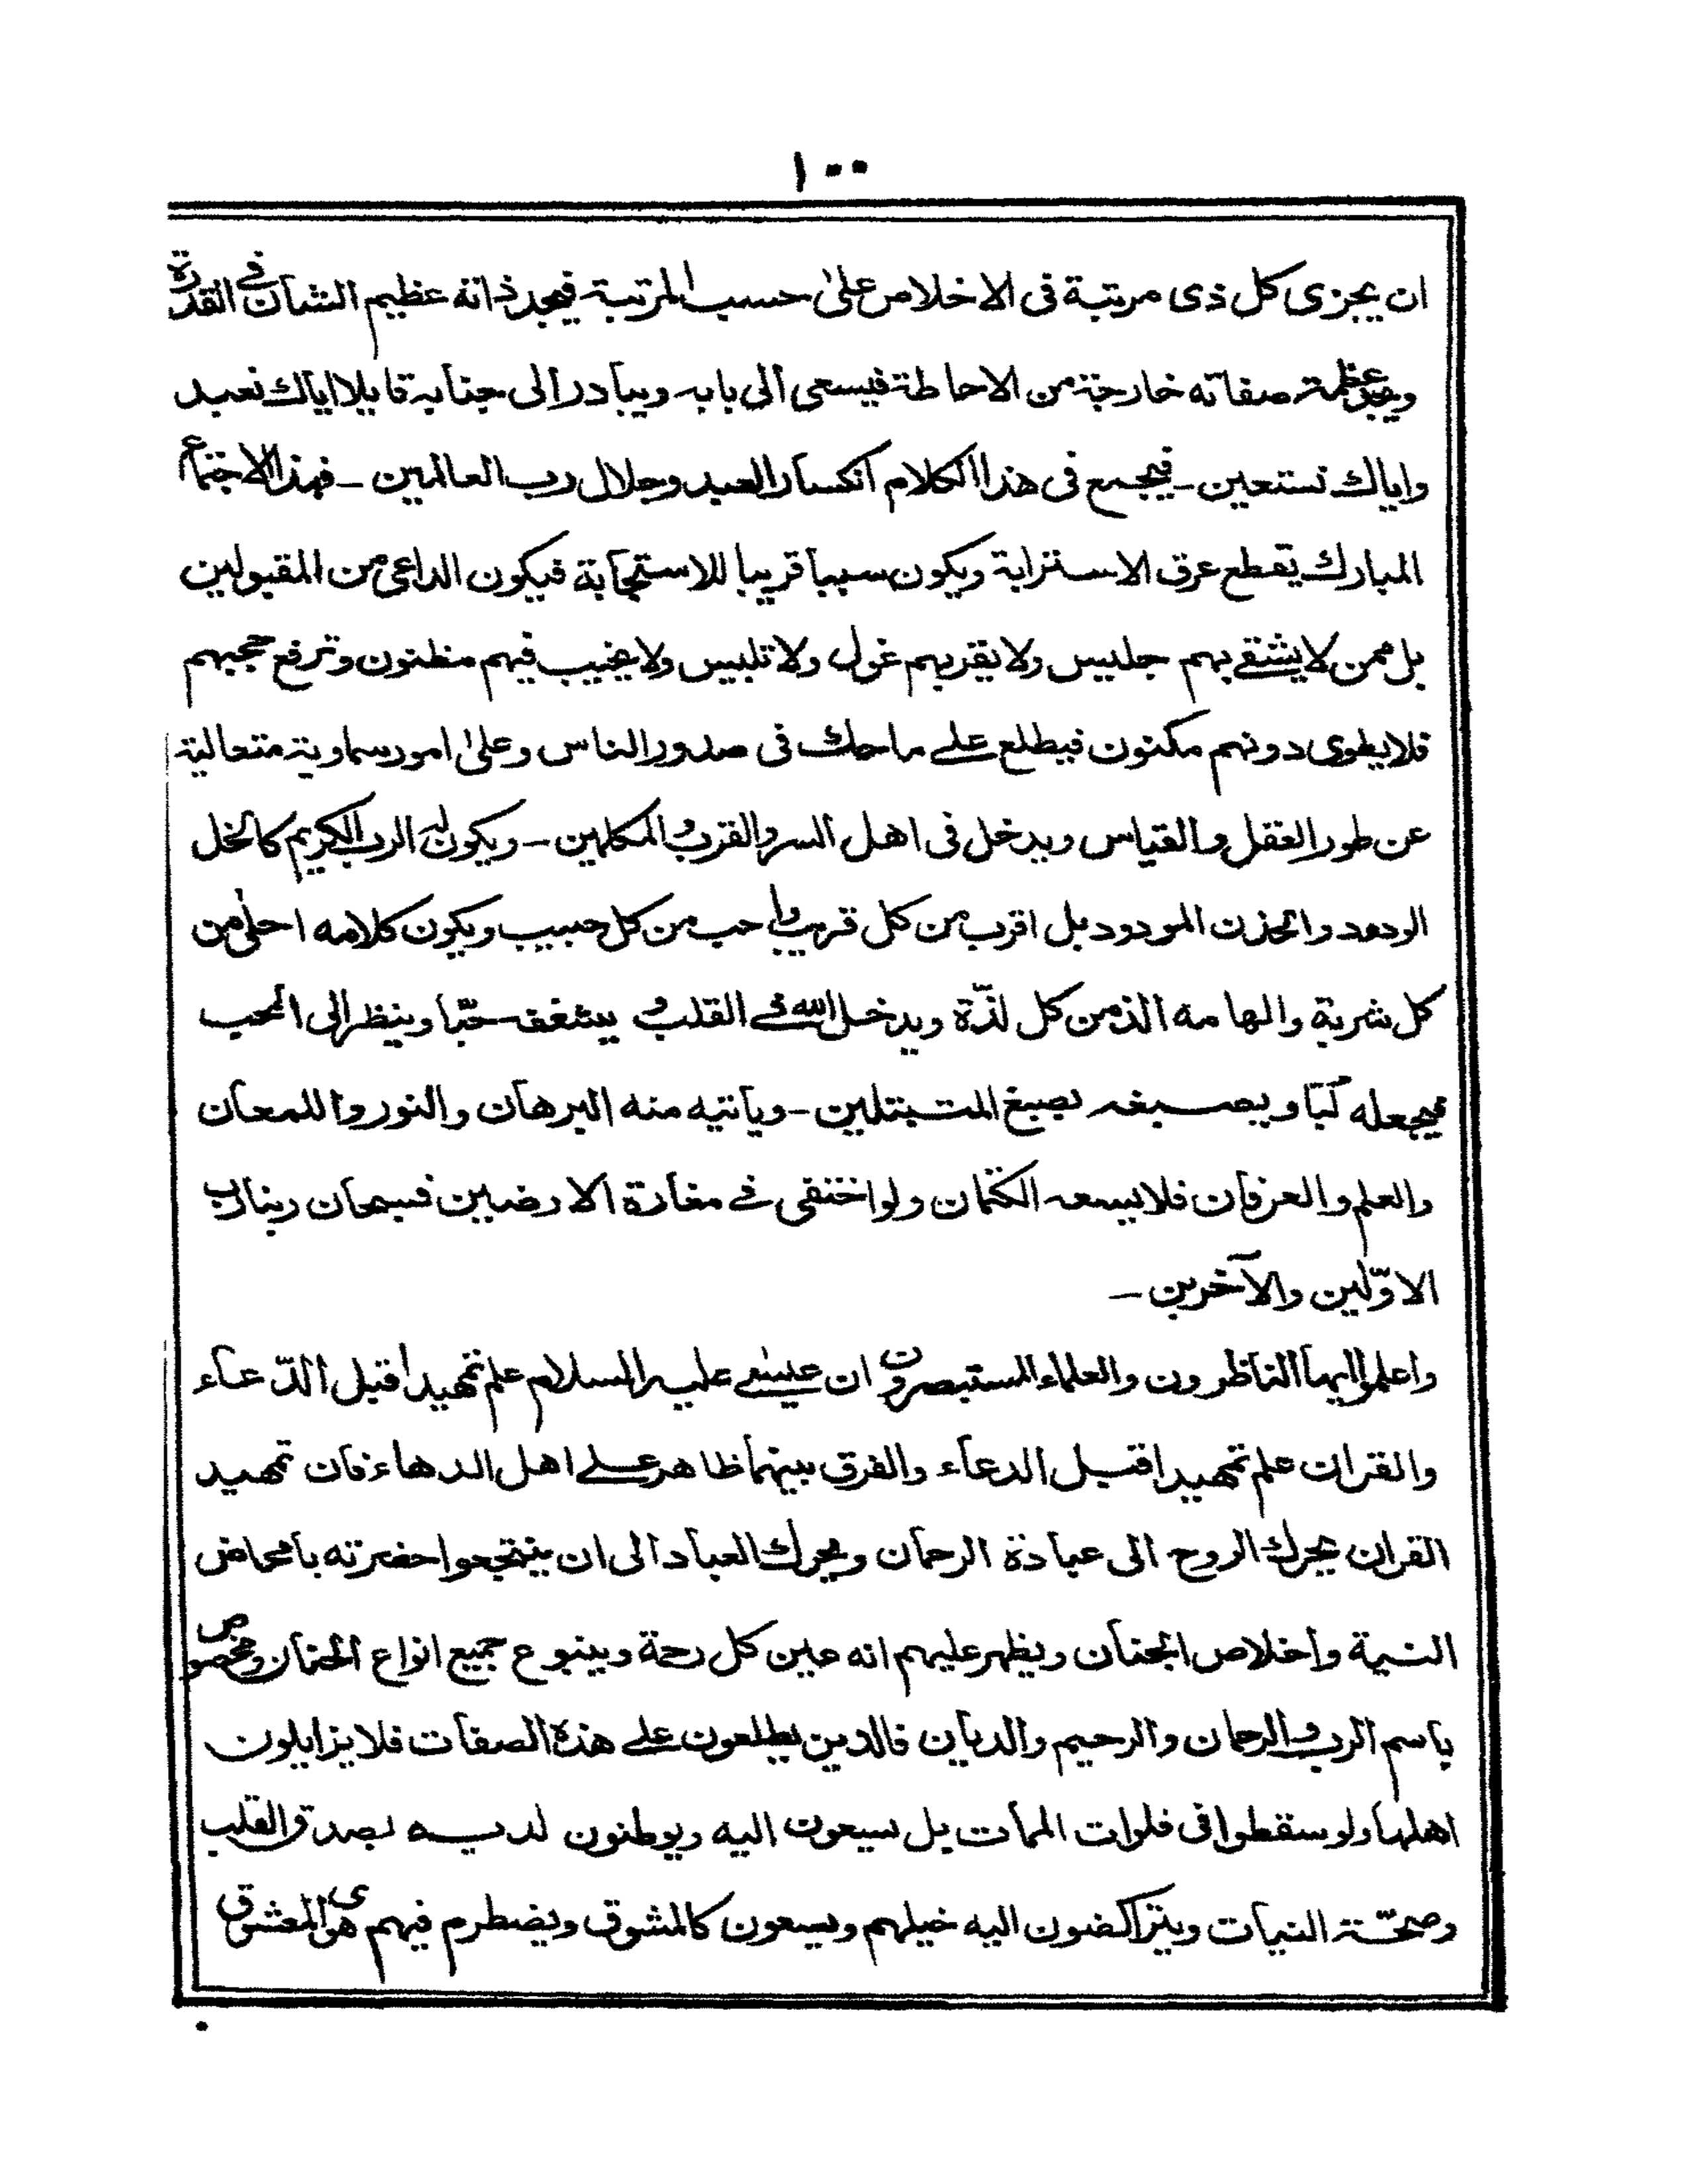 ١٠٠
ان يجزى كل ذى مرتبة فى الاخلاص علىٰ حسب المرتبة فيجد ذاته عظيم الشان فى القدرة
ويجد عظمة صفاته خارجة من الاحاطة فيسعى الى بابه ويبادر الى جنابه قايلا اياك نعبد
واياك نستعين - فيجمع فى هذا الكلام انكسار العبد وجلال رب العالمين - فهذا الاجتماع
المبارك يقطع عرق الاسترابة ويكون سببا قريبا للاستجابة فيكون الداعى من المقبولين
بل ممن لا يشقے بهم جليس ولا يقربهم غول ولا تلبيس ولا يخيب فيهم مظنون وترفع حجبهم
فلا يطوى دونهم مكنون فيطلع علے ما حك فى صدور الناس وعلىٰ امور سماوية متعالية
عن طور العقل والقياس ويدخل فى اهل السر والقرب والمكلمين - ويكون له الرب الكريم كالخل
الودود والخدن المودود بل اقرب من كل قريب واحب من كل حبيب ويكون كلامه احلىٰ من
كل شربة والهامه الذ من كل لذّة ويدخل الله فے القلب و يشغف حبّا وينظر الى المحب
فيجعله لبّا ويصبغه بصبغ المتبتلين - وياتيه منه البرهان والنور واللمعان
والعلم والعرفان فلا يسعه الكتمان ولو اختفى فے مغارة الارضين فسبحان ربنا رب
الاوّلين والآخرين -
واعلموا ايها الناظرون والعلماء المستبصرون ان عيسىٰے عليه السلام علم تمهيدا قبل الدّعاء
والقران علم تمهيدا قبل الدعاء والفرق بينهما ظاهر علے اهل الدهاء فان تمهيد
القران يحرك الروح الى عبادة الرحمان ويحرك العباد الى ان ينتجعوا حضرته بامحاض
النية واخلاص الجنان ويظهر عليهم انه عين كل رحمة وينبوع جميع انواع الحنان ومخصوص
باسم الرب والرحمان والرحيم والديان فالذين يطلعون علے هذه الصفات فلا يزايلون
اهلها ولو سقطوا فى فلوات الممات بل يسعون اليه ويوطنون لديه بصدق القلب
وصحّة النيات ويتراكضون اليه خيلهم ويسعون كالمشوق ويضطرم فيهم هوى المعشوق